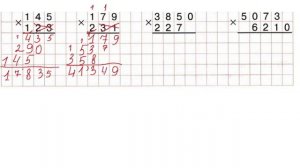 × 145 × 179 × 3850 × 5073
123 231 227 6210
435 179
290 537
145 358
17835 41349